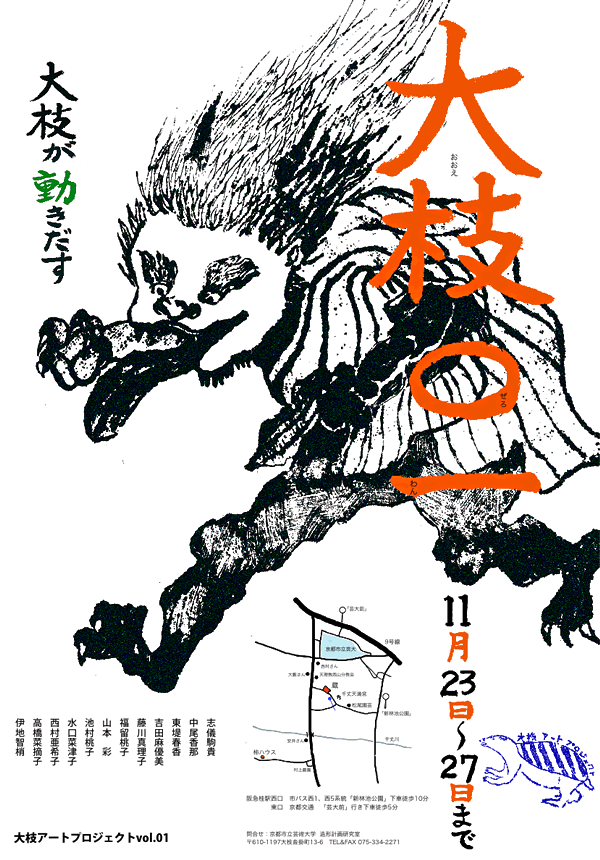 大枝
おおえ
〇
ぜろ
一
わん
大枝が動きだす
11月23日〜27日まで
大枝アートプロジェクト
「芸大前」
9号線
京都市立芸大
西村さん
大藪さん
天理教西山分教会
蔵
千丈天満宮
松尾園芸
「新林池公園」
千丈川
安井さん
柿ハウス
村上農園
志儀駒貴
中尾香那
東堤春香
吉田麻優美
藤川真理子
福留桃子
山本 彩
池村桃子
水口菜津子
西村亜希子
高橋菜摘子
伊地智梢
阪急桂駅西口 市バス西1、西5系統「新林池公園」下車徒歩10分
東口 京都交通 「芸大前」行き下車徒歩5分
大枝アートプロジェクトvol.01
問合せ：京都市立芸術大学 造形計画研究室
〒610-1197大枝沓掛町13-6 TEL&FAX 075-334-2271